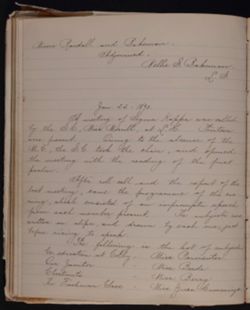 Misses Randall and Bakeman.
Adjourned.
Nellie S. Bakeman
Jan. 22. 1890.
A meeting of Sigma Kappa was called
by the S.C., Miss Merrill, at
were present. Owing to the absence of the
M.C., the S.C. took the chair, and opened
the meeting with the reading of the first
psalm.
After roll call and the report of the
last meeting, came the programme of the eve-
ning, which consisted of an impromptu speech
from each member present. The subjects were
written on slips and drawn by each one, just
before rising to speak.
The following is the list of subjects
Co-education at Colby - Miss Parmenter
Our Janitor - Miss Beede
Electricity - Miss Berry
The Freshman Class - Miss Grace Cummings